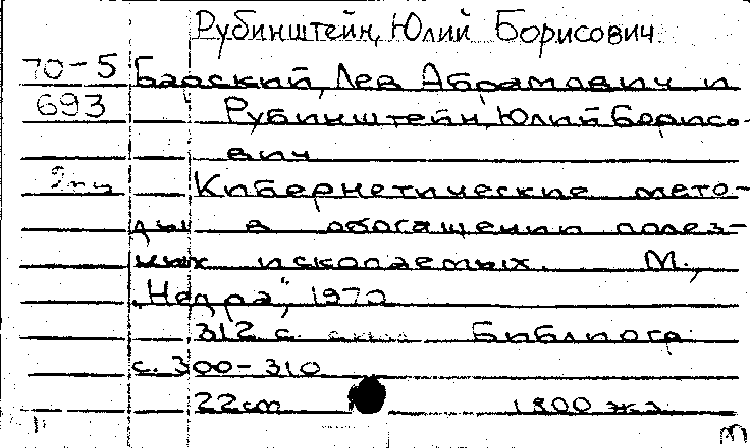 Рубинштейн, Юлий Борисович
70-5 Барский, Лев Абрамович и
693 Рубинштейн, Юлий Борисо-
вич
Кибернетические мето-
ды в обогащении полез-
ных ископаемых. М.,
"Недра", 1970
312 с. Библиогр.
с. 300-310
22см 1800 экз.